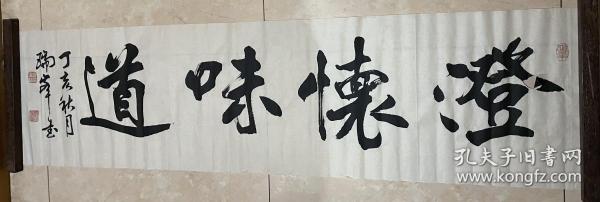 澄懷味道
丁亥秋月
瑞峰書
孔夫子旧書网
www.kongfz.com